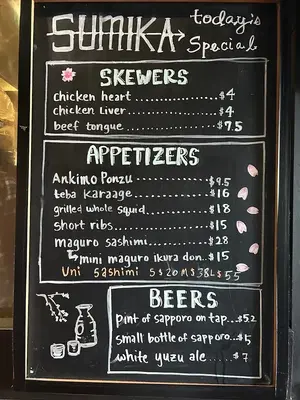 SUMIKA → today's Special
SKEWERS
chicken heart ............ $4
chicken Liver ............ $4
beef tongue ............ $7.5
APPETIZERS
Ankimo Ponzu ............ $9.5
teba karaage ............ $16
grilled whole squid ...... $18
short ribs ............ $15
maguro sashimi ............ $28
↳ mini maguro ikura don.. $15
Uni Sashimi S $20 M $38 L $55
BEERS
pint of sapporo on tap... $5.2
small bottle of sapporo.. $5
white yuzu ale ..... $7